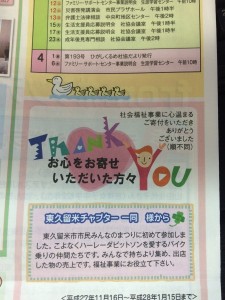 12㊏ ファミリーサポートセンター事業説明会 生涯学習センター 午前10時
12㊏ 災害復興講演会 市民プラザホール 午後1時半
13㊐ 弁護士法律相談 中央町地区センター 午後2時
15㊋ 生活支援員応募説明会 社協会議室 午後1時半
22㊋ 生活支援員応募説明会 社協会議室 午前10時
23㊌ 成年後見専門相談 社協会議室 午後2時
4 1㊎ 第193号 ひがしくるめ社協だより発行
6㊌ ファミリーサポートセンター事業説明会 生涯学習センター 午前10時
社会福祉事業に心温まる
ご寄付をいただき
ありがとう
ございました
(順不同)
THANK
お心をお寄せ
いただいた方々
YOU
東久留米チャプター 一同 様から
東久留米市市民みんなのまつりに初めて参加しま
した。こよなくハーレーダビットソンを愛するバイク
乗りの仲間たちです。みんなで持ちより集め、出店
した物の売上です。福祉事業にお役立て下さい。
<平成27年11月16日〜平成28年1月15日まで>